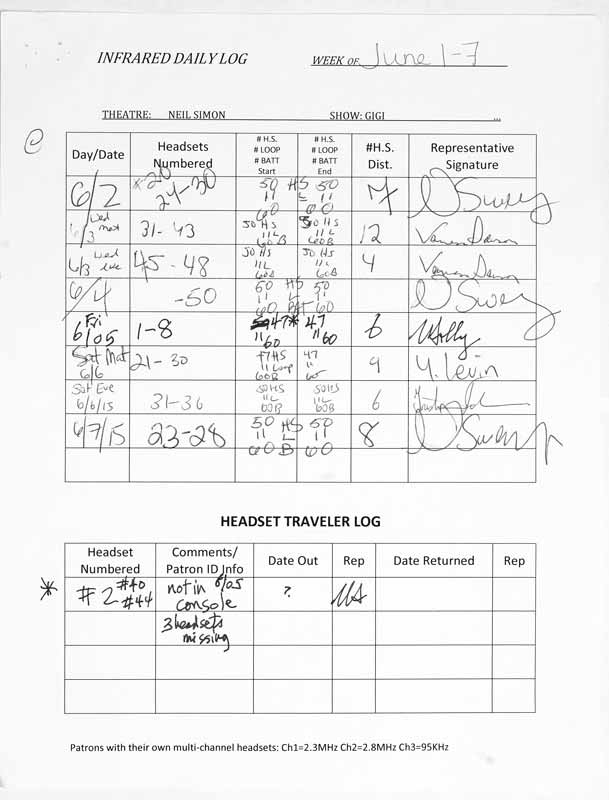 INFRARED DAILY LOG WEEK OF June 1-7
THEATRE: NEIL SIMON SHOW: GIGI
Day/Date Headsets Numbered # H.S. # LOOP # BATT Start # H.S. # LOOP # BATT End #H.S. Dist. Representative Signature
6/2 24-30 50 HS 50 7
11 L 11
60 60
6/3 Wed mat 31-43 50 HS 50 HS 12
11 L 11 L
60 B 60 B
6/3 Wed eve 45-48 50 HS 50 HS 4
11 L 11 L
60 B 60 B
6/4 -50 50 HS 50
11 L 11
60 BAT 60
Fri 6/05 1-8 47* 47 6
11 11
60 60
Sat Mat 6/6 21-30 47 HS 47 9 Y. Levin
11 Loop 11
60 B
Sat Eve 6/6/15 31-36 50 HS 50 HS 6
11 L 11 L
60 B 60 B
6/7/15 23-28 50 HS 50 8
11 L 11
60 B 60
HEADSET TRAVELER LOG
Headset Numbered Comments/ Patron ID Info Date Out Rep Date Returned Rep
* #2 #40 #44 not in 6/05 console ?
3 headsets missing
Patrons with their own multi-channel headsets: Ch1=2.3MHz Ch2=2.8MHz Ch3=95KHz